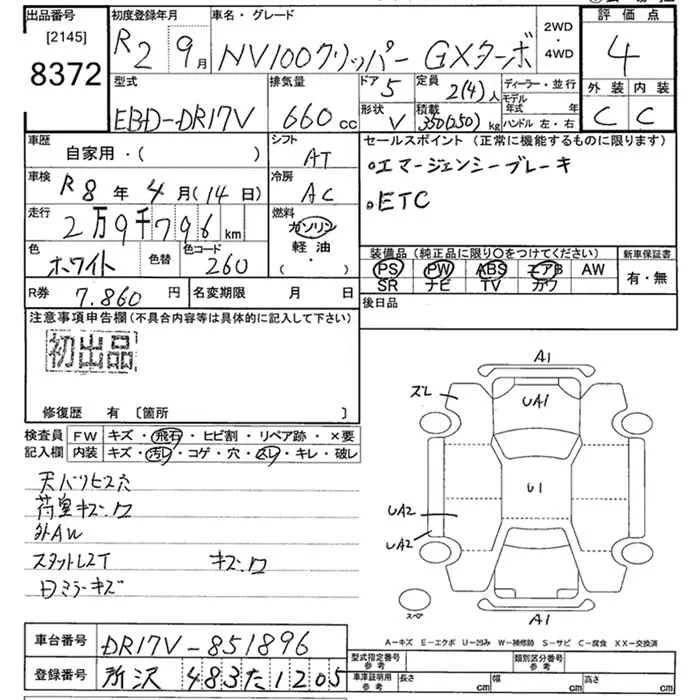 出品番号
[2145]
8372
初度登録年月
R2 9月
車名・グレード
NV100クリッパー GXターボ
2WD
・
4WD
評価点
4
外装 内装
C C
型式
EBD-DR17V
排気量
660 cc
ドア 5
形状 V
定員 2(4)人
積載 350(250) kg
ディーラー・並行
モデル年式 年
ハンドル 左・右
車歴
自家用・( )
シフト
AT
車検 R8年4月(14日)
冷房
AC
走行 2万9千796 km
燃料
ガソリン
軽油
( ・ )
色
ホワイト
色替
色コード
260
R券 7.860円 名変期限 月 日
セールスポイント (正常に機能するものに限ります)
○エマージェンシーブレーキ
○ETC
装備品 (純正品に限り○をつけてください)
PS PW ABS エアB AW
SR ナビ TV カワ
新車保証書
有・無
後日品
注意事項申告欄(不具合内容等は具体的に記入して下さい)
初出品
修復歴 有 〔箇所 〕
検査員記入欄
FW キズ・飛石・ヒビ割・リペア跡・×要
内装 キズ・汚レ・コゲ・穴・スレ・キレ・破レ
天バリヒス穴
荷室キズ.ワ
外AW
スタットレスT キズ.ワ
ミラーキズ
A1
ズレ
UA1
U1
UA2
UA2
スペア
A1
A−キズ E−エクボ U−凹み W−補修跡 S−サビ C−腐食 XX−交換済
車台番号 DR17V-851896
登録番号 所沢 483 た 1205
型式指定番号参考
類別区分番号参考
車庫証明用参考 長さ cm 幅 cm 高さ cm